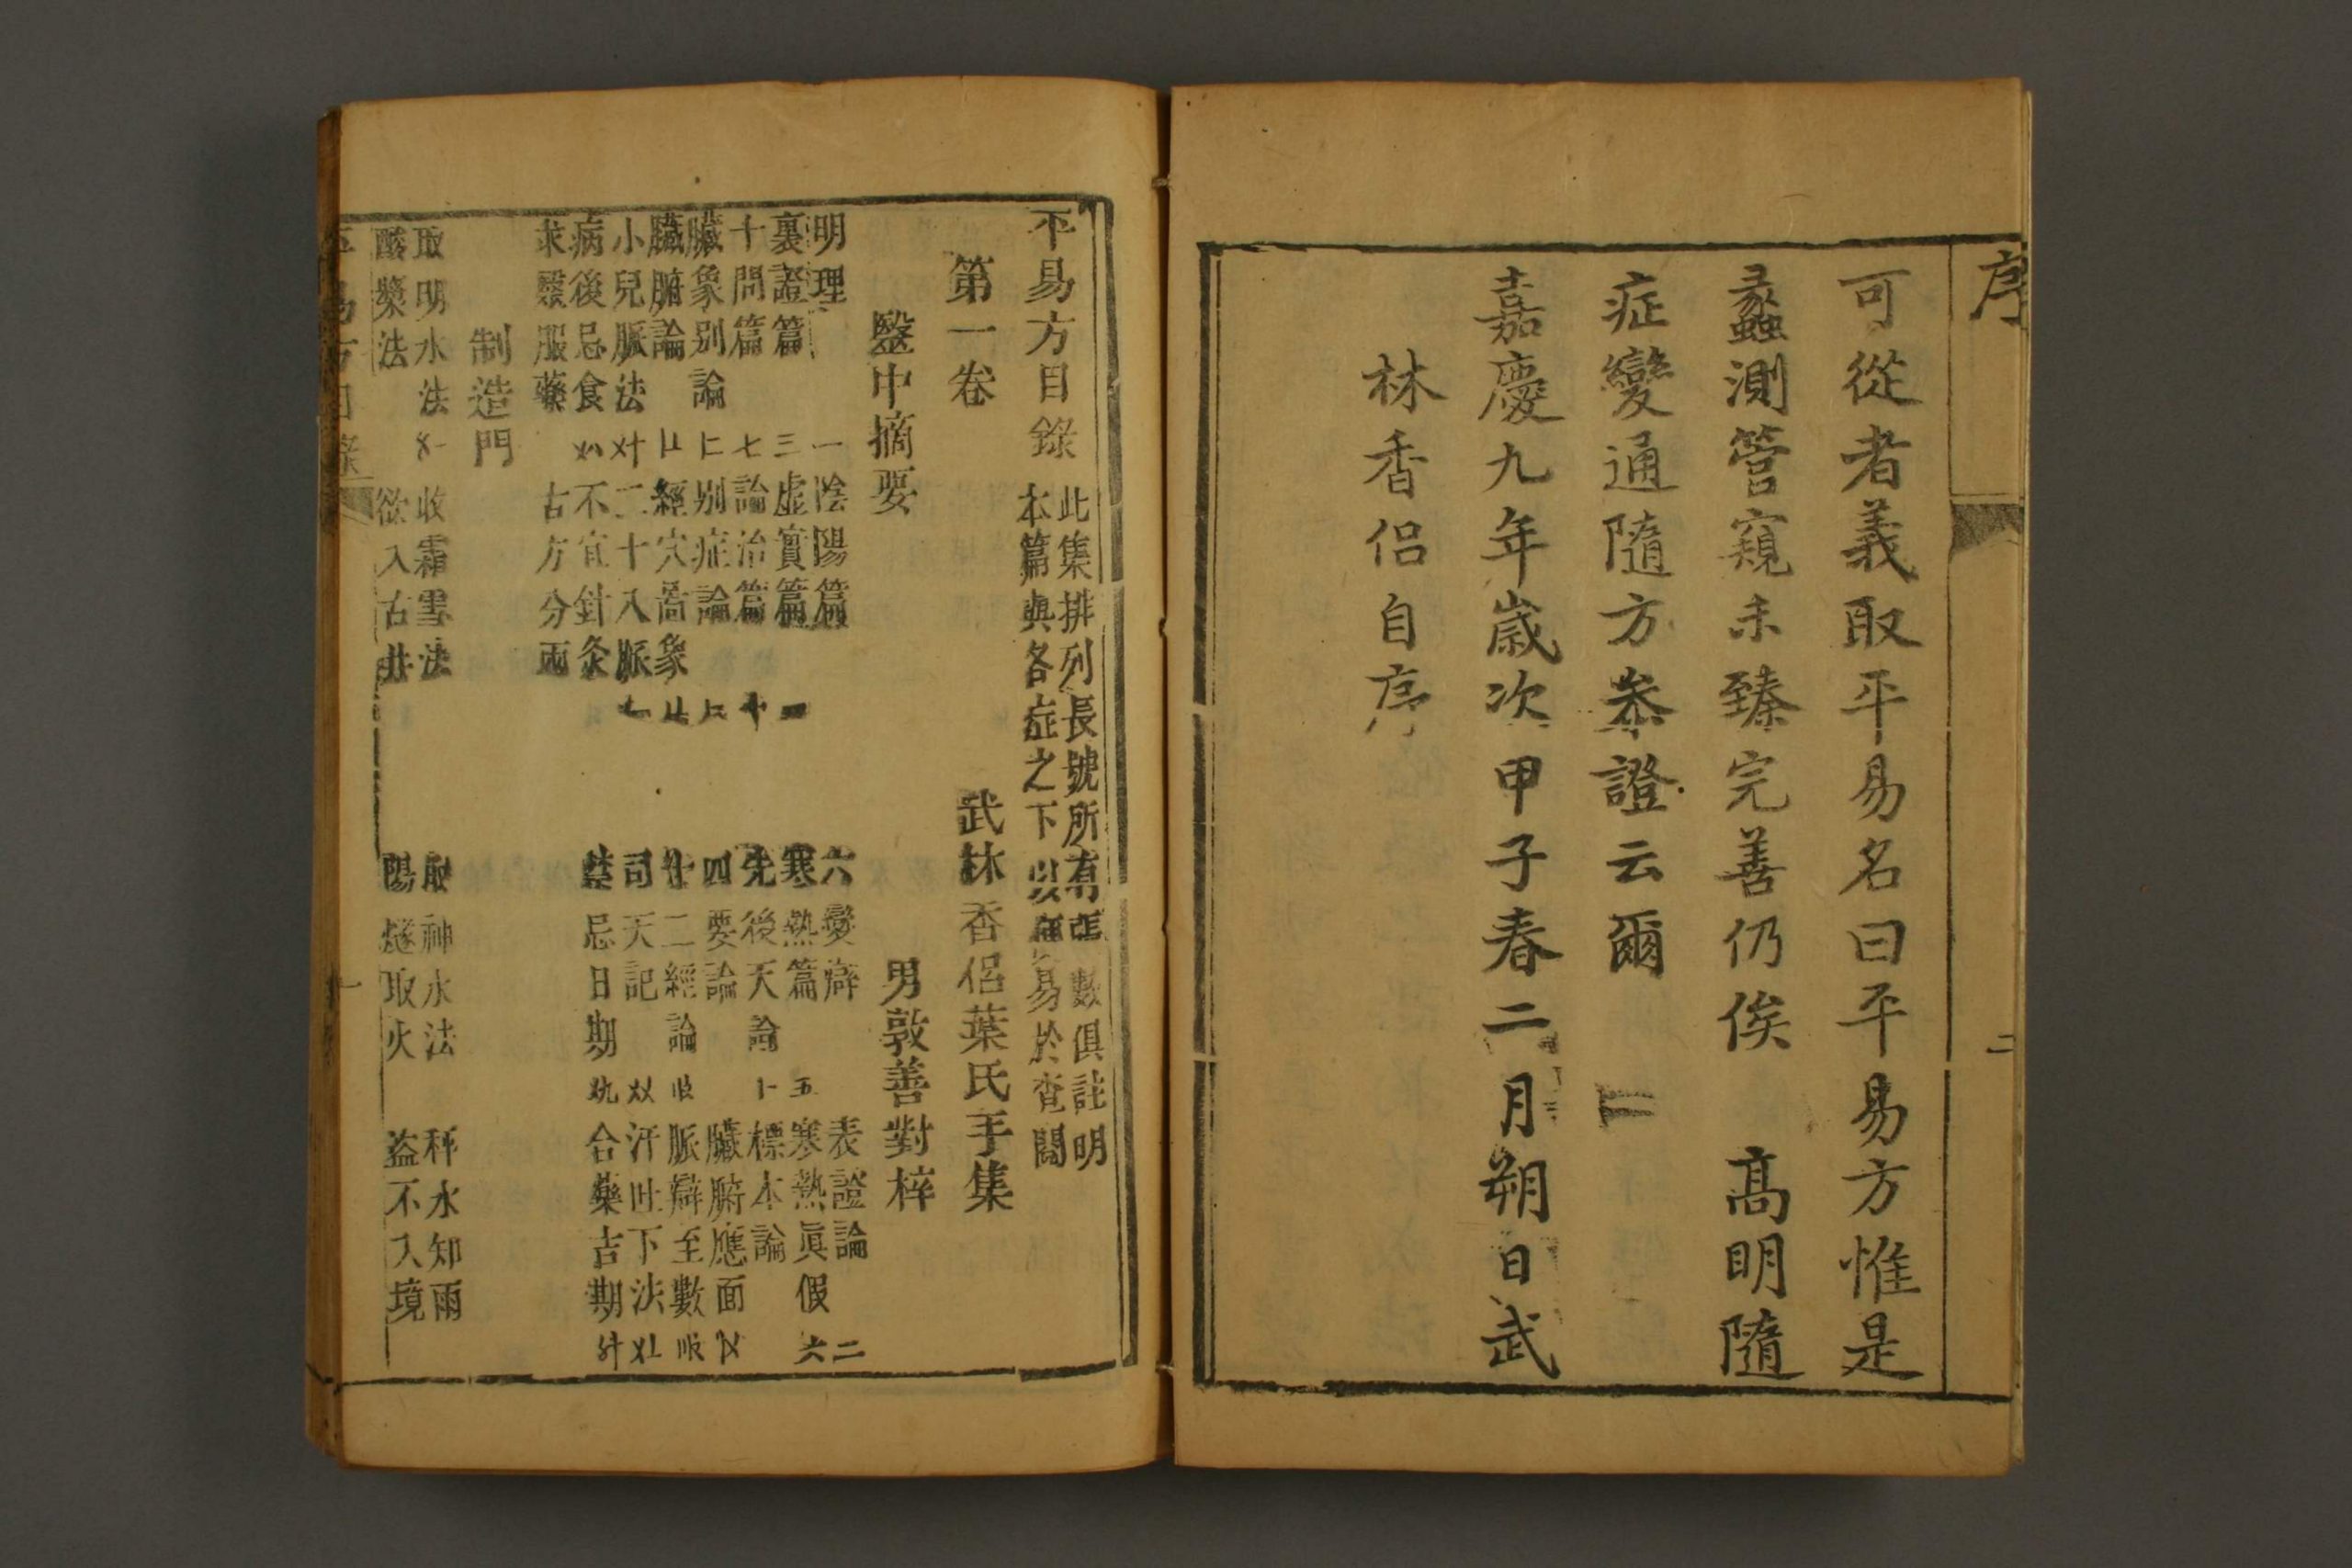 序
二
可從者義取平易名曰平易方惟是
蠡測管窺未臻完善仍俟 高明隨
症變通隨方參證云爾
嘉慶九年歲次甲子春二月朔日武
林香侶自序
平易方目錄
此集排列長號所有張數俱註明
本篇與各症之下以便易於查閱
第一卷
武林香侶葉氏手集
醫中摘要
男敦善對梓
明理 一 陰陽篇 六變辯 表證論 二
裏證篇 三 虛實篇 寒熱篇 五 寒熱眞假 六
十問篇 七 論治篇 十 先後天論 標本論
臟象別論 別症論 四要論 臟腑應面
臟腑論 經穴啚象 十二經論 脈辯至數
小兒脈法 二十八脈 司天記 汗吐下法
病後忌食 不宜針灸 禁忌日期 合藥吉期
求醫服藥 古方分兩
制造門
取明水法 收霜雪法 取神水法 秤水知雨
酸漿法 欲入古井 陽燧取火 盗不入境
平易方目錄
一